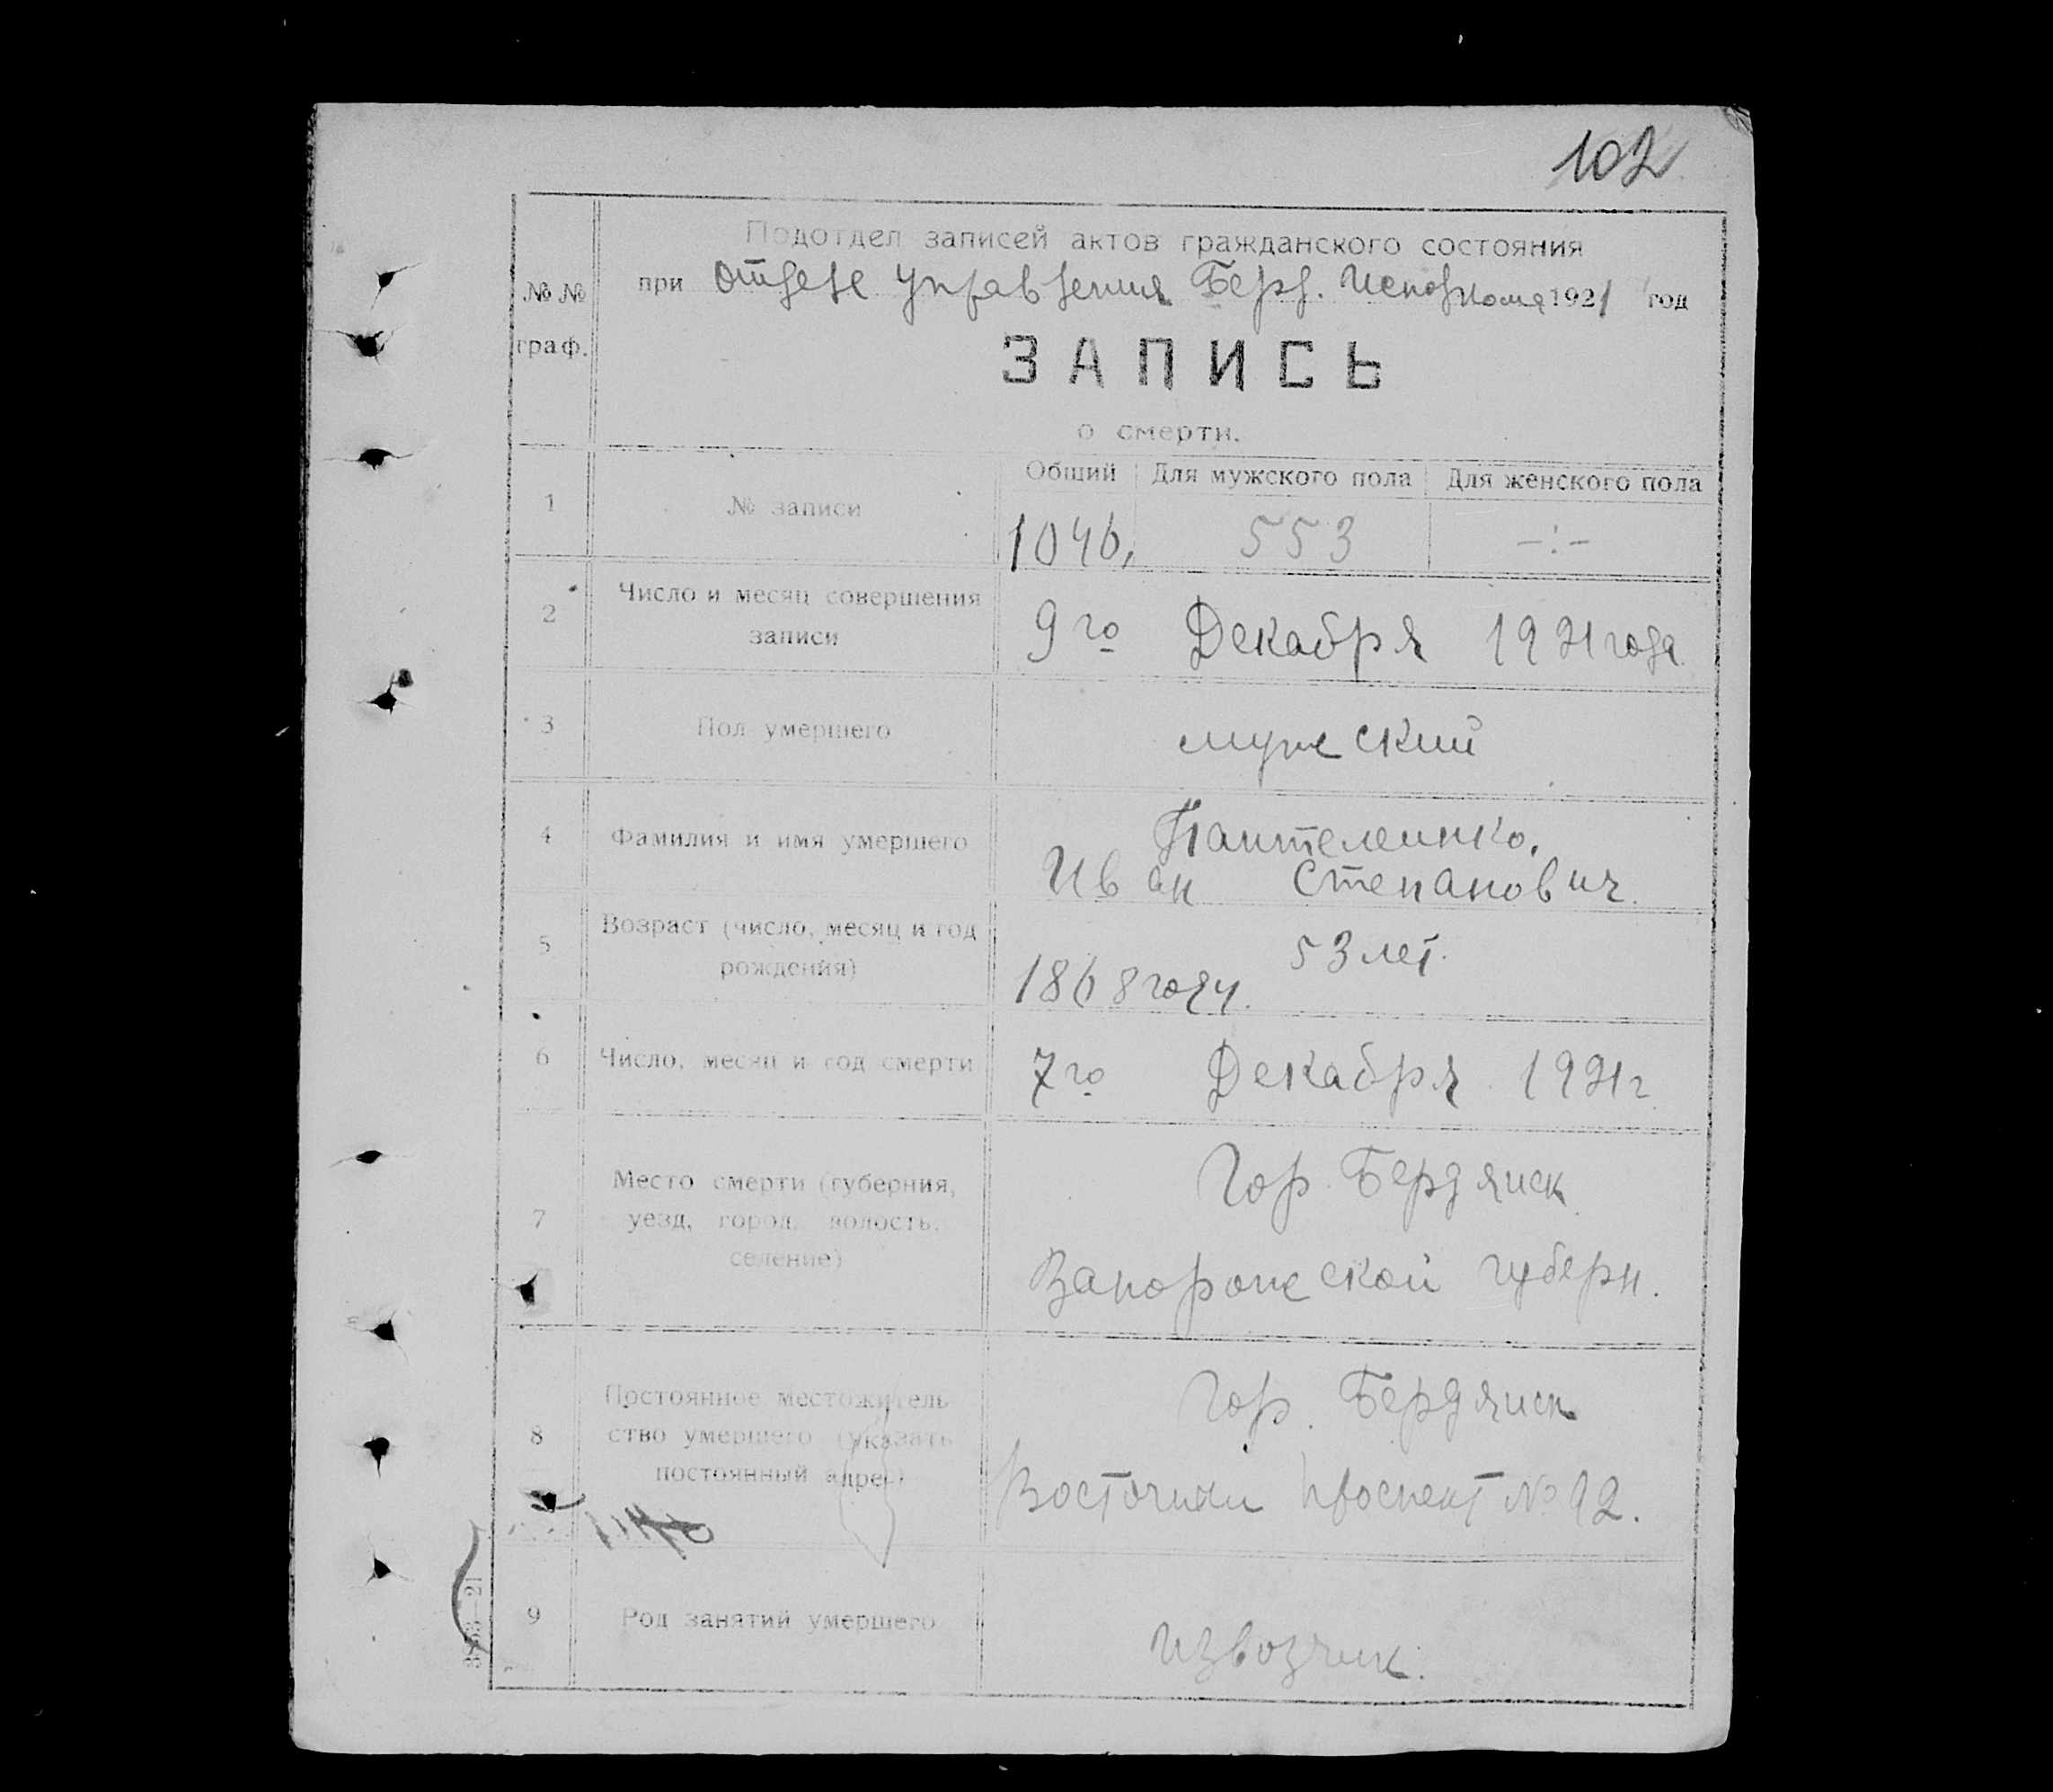 102
Подотдел записей актов гражданского состояния
№ №
граф.
при Отделе Управления Берд. Исполкома 1921 год
ЗАПИСЬ
о смерти.
Общий Для мужского пола Для женского пола
1 № записи 1046, 553 -:-
2 Число и месяц совершения
записи
9го Декабря 1921 года
3 Пол умершего мужеский
4 Фамилия и имя умершего Пантелеинко,
Иван Степанович.
5 Возраст (число, месяц и год
рождения)
53 лет.
1868 году.
6 Число, месяц и год смерти 7го Декабря 1921 г.
7 Место смерти (губерния,
уезд, город, волость,
селение)
Гор. Бердянск
Запорожеской губерн.
8 Постоянное местожитель
ство умершего (указать
постоянный адрес)
Гор. Бердянск
Восточный проспект № 92.
9 Род занятий умершего извозчик.